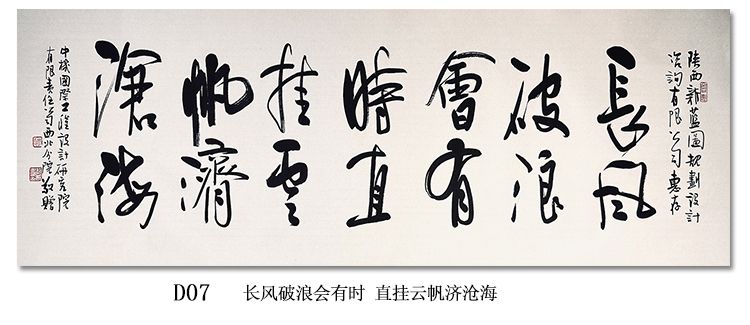 陕西新蓝图规划设计
咨詢有限公司惠存
長风
破浪
會有
時直
挂雲
帆濟
滄海
中機國際工程設計研究院
有限责任公司西北分院敬贈
D07 长风破浪会有时 直挂云帆济沧海